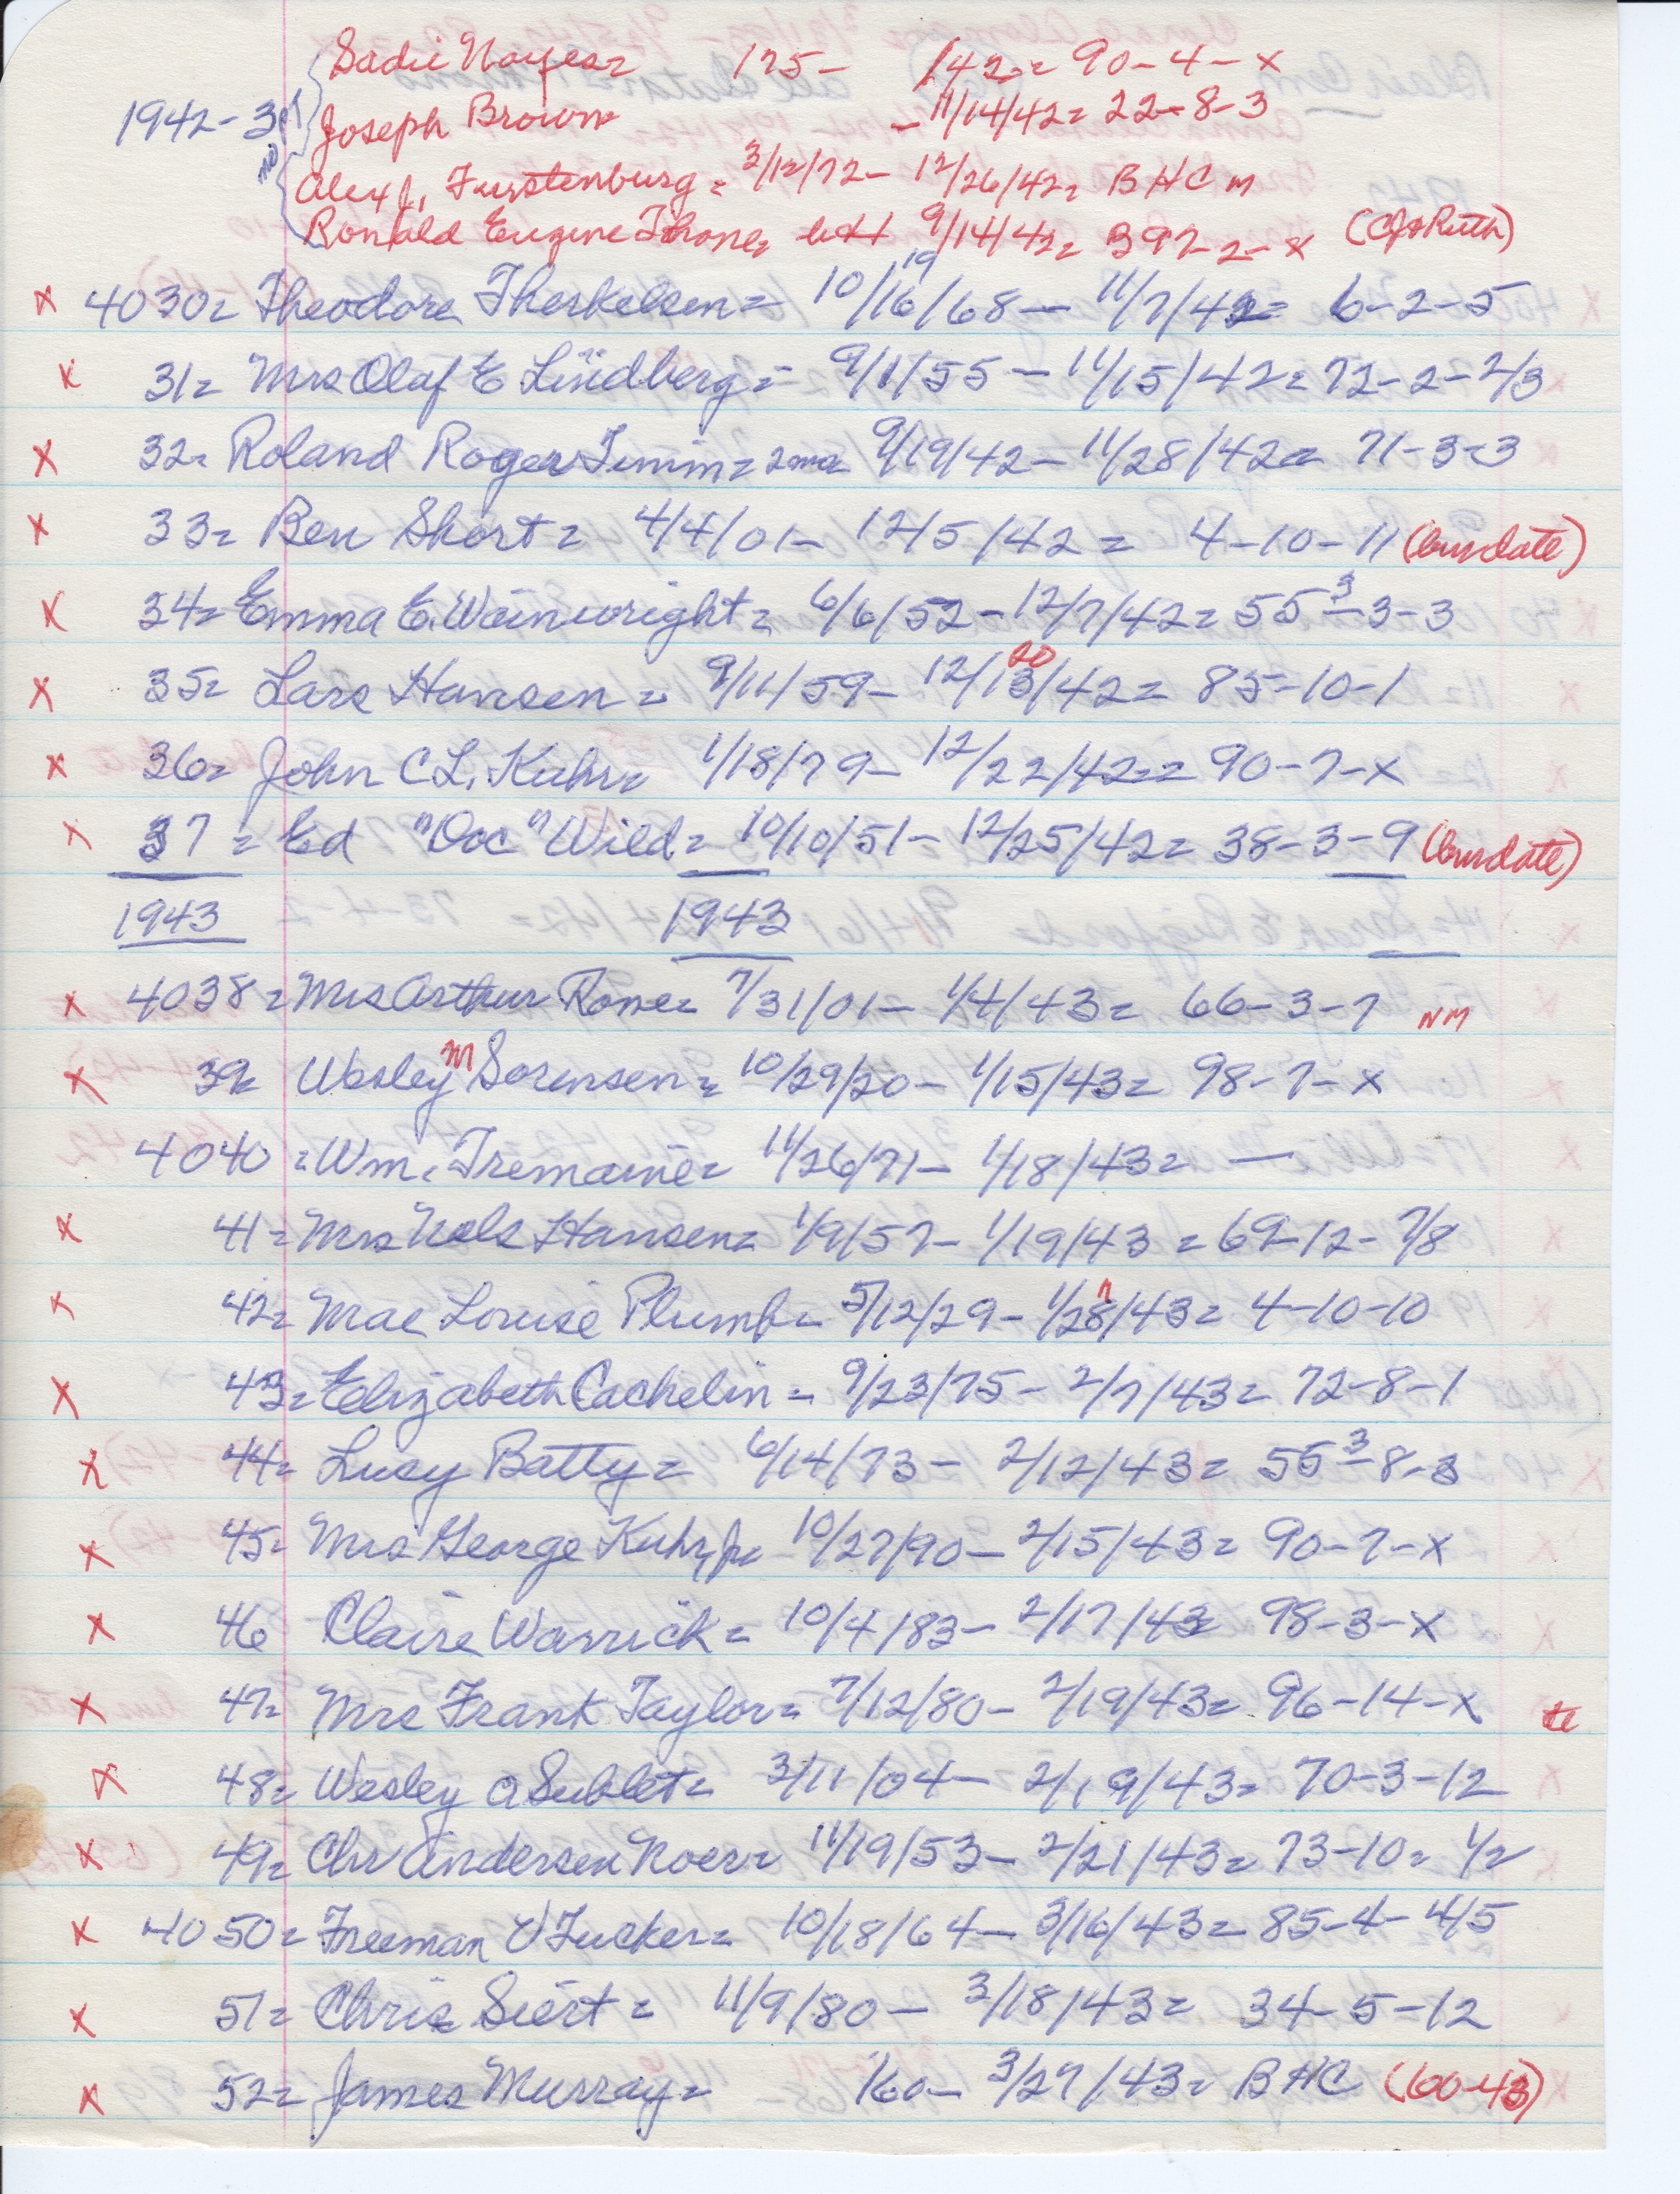 Sadie Noyes= 175- /42= 90-4-x
1942-3 Joseph Brown -11/14/42= 22-8-3
no. Alex J. Furstenburg= 3/12/72- 12/26/42= BHC m
Ronald Eugene Thone= 9/14/42= 397-2-x (CJ&Ruth)
x 4030= Theodore Therkelsen= 10/16/68- 11/7/42= 6-2-5
19
x 31= Mrs Olaf E Lindberg= 9/1/55- 11/15/42= 72-2-2/3
x 32= Roland Roger Timm= 2mo 9/19/42- 11/28/42= 71-3-3
x 33= Ben Short= 4/4/01- 12/5/42= 4-10-11 (burdate)
x 34= Emma E. Wainwright= 6/6/52- 12/7/42= 55 3-3-3
20
x 35= Lars Hansen= 9/11/59- 12/13/42= 85-10-1
x 36= John C L. Kuhr= 1/18/79- 12/22/42= 90-7-x
x 37= Ed "Doc" Wild= 10/10/51- 12/25/42= 38-3-9 (burdate)
1943 1943
x 4038= Mrs Arthur Rone= 7/31/01- 1/4/43= 66-3-7 NM
x 39= Wesley M Sorensen= 10/29/20- 1/15/43= 98-7-x
4040= Wm. Tremaine= 11/26/71- 1/18/43= —
x 41= Mrs Nels Hansen= 1/9/57- 1/19/43= 69-12-7/8
x 42= Mae Louise Plumb= 5/12/29- 1/28/43= 4-10-10
x 43= Elizabeth Cachelin= 9/23/75- 2/7/43= 72-8-1
x 44= Lucy Batty= 6/14/73- 2/12/43= 55 3-8-3
x 45= Mrs George Kuhr, Jr= 10/27/90- 2/15/43= 90-7-x
x 46 Claire Warrick= 10/4/83- 2/17/43= 98-3-x
x 47= Mrs Frank Taylor= 7/12/80- 2/19/43= 96-14-x
x 48= Wesley A Sublet= 3/11/04- 2/19/43= 70-3-12
x 49= Chr Andersen Koer= 11/19/53- 2/21/43= 73-10= 1/2
x 4050= Freeman V Tucker= 10/18/64- 3/16/43= 85-4-4/5
x 51= Chris Siert= 11/9/80- 3/18/43= 34-5-12
x 52= James Murray= /60- 3/27/43= BHC (100-43)